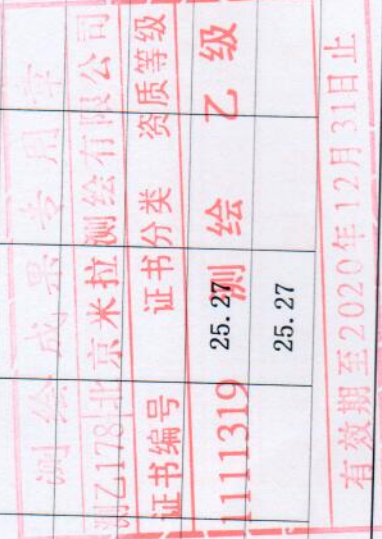 测绘成果专用章
测乙178 北京米拉测绘有限公司
证书编号 证书分类 资质等级
1111319 测绘 乙级
25.27
25.27
有效期至2020年12月31日止